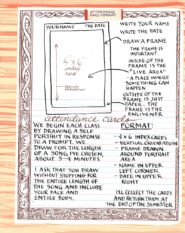 ATTENDANCE
CARD FORMAT
YOUR NAME
THE DATE
4 x 6
WRITE YOUR NAME
WRITE THE DATE
DRAW A FRAME
THE FRAME IS
IMPORTANT
INSIDE OF THE
FRAME IS THE
"LIVE AREA"
A PLACE WHERE
SOMETHING CAN
HAPPEN.
OUTSIDE OF THE
FRAME IS JUST
PAPER. THE
FRAME IS THE
ENLIVENER
attendance cards
WE BEGIN EACH CLASS
BY DRAWING A SELF
PORTRAIT IN RESPONSE
TO A PROMPT. WE
DRAW FOR THE LENGTH
OF A SONG I'VE CHOSEN,
ABOUT 3-4 MINUTES.
I ASK THAT YOU DRAW
WITHOUT STOPPING FOR
THE ENTIRE LENGTH OF
THE SONG, AND INCLUDE
YOUR FACE AND
ENTIRE BODY.
FORMAT:
- 4x6 INDEX CARDS
- VERTICAL ORIENTATION
- FRAME DRAWN
AROUND PORTRAIT
AREA
- NAME IN UPPER
LEFT CORNER
- DATE IN UPPER
RIGHT
I'LL COLLECT THE CARDS
AND RETURN THEM AT
THE END OF THE SEMESTER